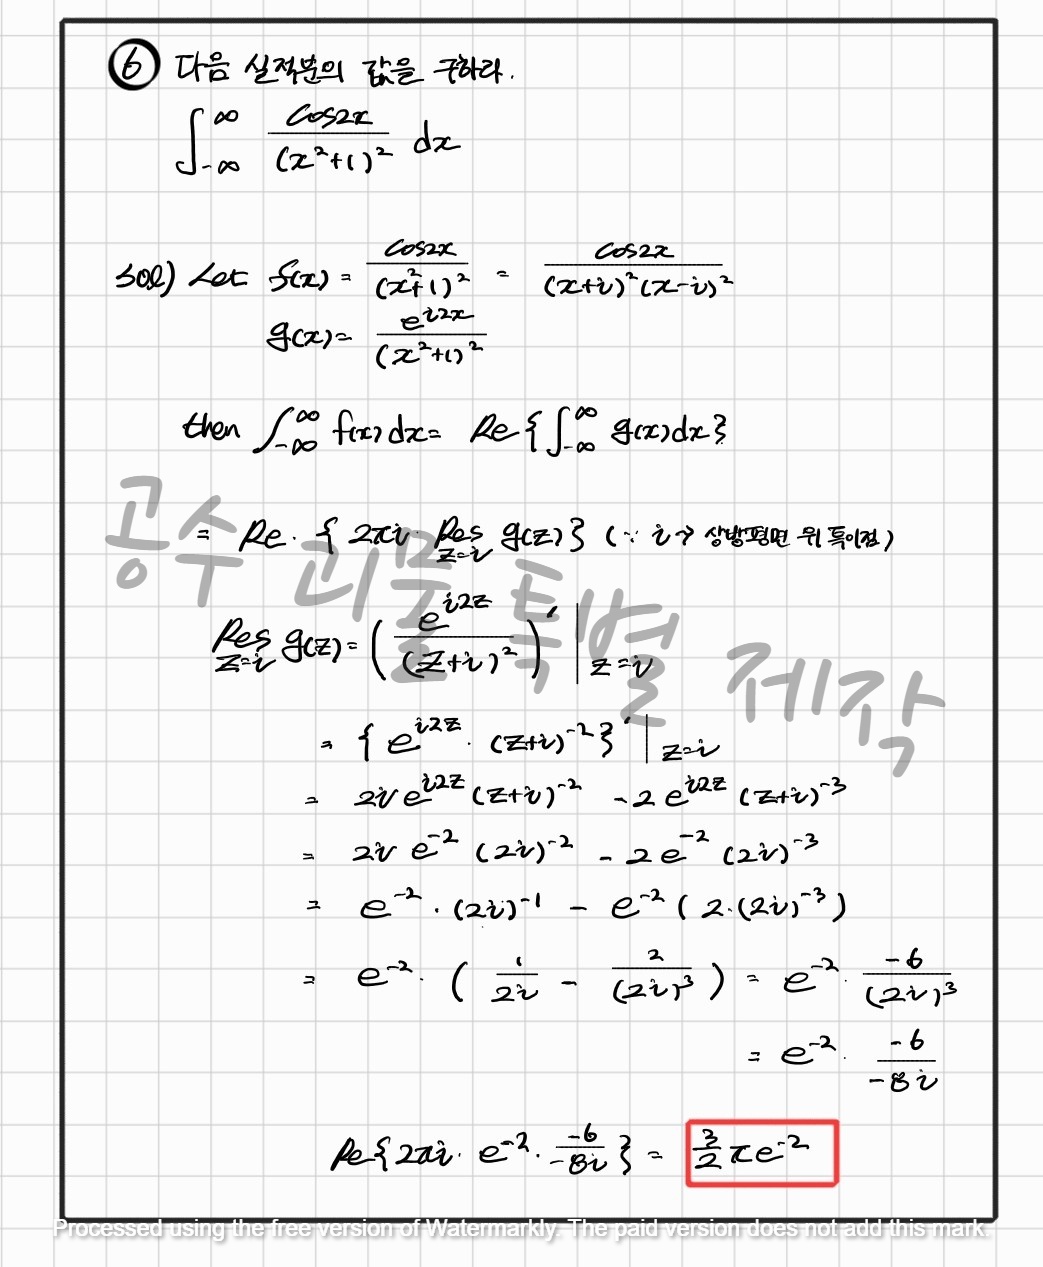 ⑥ 다음 실적분의 값을 구하라.
∫_{-∞}^{∞} cos2x / (x²+1)² dx
sol) Let f(x) = cos2x / (x²+1)² = cos2x / (x+i)²(x-i)²
g(x) = e^{i2x} / (x²+1)²
then ∫_{-∞}^{∞} f(x)dx = Re{∫_{-∞}^{∞} g(x)dx}
= Re·{2πi·Res_{z=i} g(z)} (∵ i가 상방평면 위 특이점)
Res_{z=i} g(z) = (e^{i2z} / (z+i)²)′ |_{z=i}
= {e^{i2z}·(z+i)^{-2}}′ |_{z=i}
= 2ie^{i2z}(z+i)^{-2} - 2e^{i2z}(z+i)^{-3}
= 2i e^{-2}(2i)^{-2} - 2e^{-2}(2i)^{-3}
= e^{-2}·(2i)^{-1} - e^{-2}(2·(2i)^{-3})
= e^{-2}·(1/2i - 2/(2i)³) = e^{-2}·-6/(2i)³
= e^{-2}·-6/-8i
Re{2πi·e^{-2}·-6/-8i} = 3/2 πe^{-2}
공수 괴물 특별 제작
Processed using the free version of Watermarkly. The paid version does not add this mark.